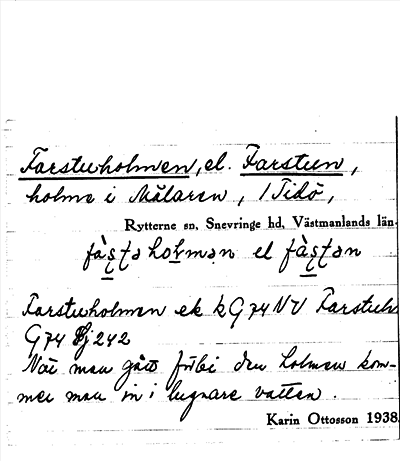 Farstuholmen, el. Farstun,
holme i Mälaren, / Tidö,
Rytterne sn, Snevringe hd, Västmanlands län.
el
Farstuholmen ek k G 74 NV Farstuh
G 74 242
När man gått förbi den holmen kom-
mer man in i lugnare vatten.
Karin Ottosson 1938.